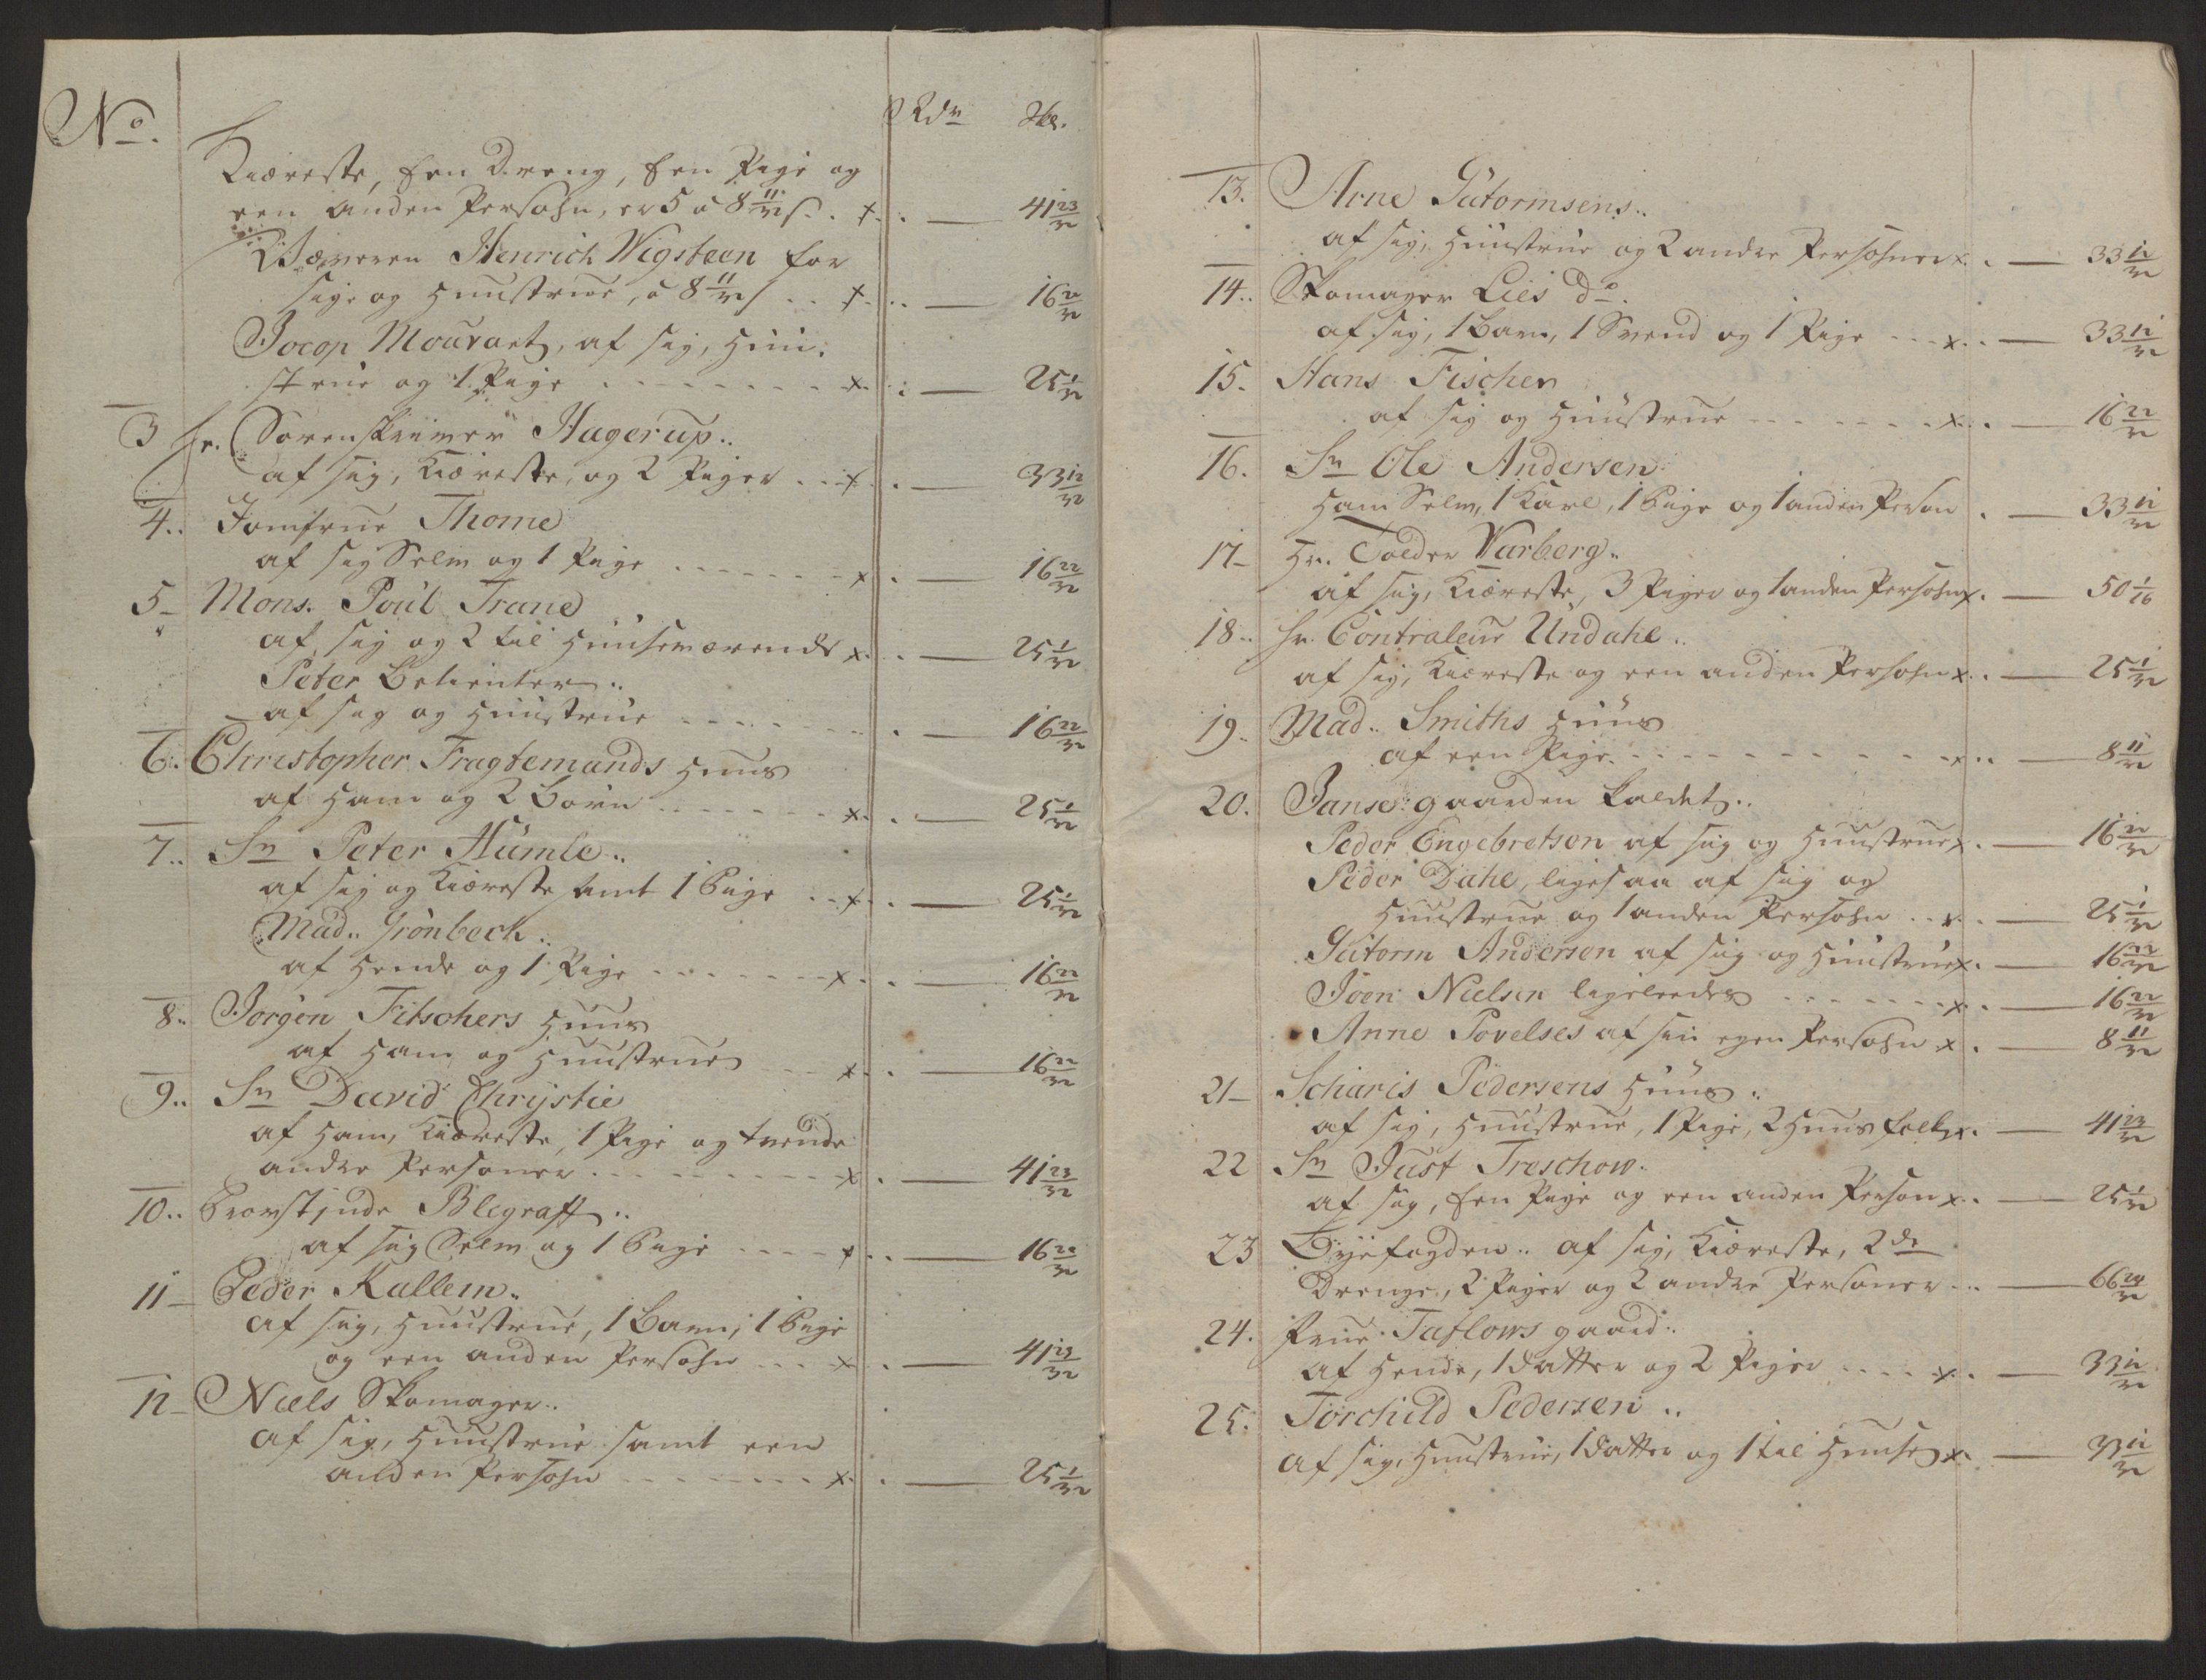 No. Rdr Skl.
Kiæreste, Een Dreng, Een Pige og
een anden Persohn, er 5 a 8 11/32 s. x. — 41 23/32
Henrich Wigsteen for
sig og Huustrue, a 8 11/32 s x. — 16 22/32
Jocop Mourart, af sig, Huu-
strue og 1 Pige x. — 25 1/32
3 Hr. Sorenskriver Hagerup..
af sig, Kiæreste, og 2 Piger x. — 33 12/32
4.. Jomfrue Thome
af sig Selv og 1 Pige x. — 16 22/32
5 Mons. Poul Trane
af sig og 2 til Huuse værende x. — 25 1/32
Peter Betienter..
af sig og Huustrue — 16 22/32
6. Christopher Fragtemands Huus
af Ham og 2 Børn x. — 25 1/32
7.. Sr Peter Humle..
af sig og Kiæreste samt 1 Pige x. — 25 1/32
Mad.. Grönbech..
af Hende og 1 Pige x. — 16 22/32
8.. Jørgen Fitschers Huus
af Ham og Huustrue x. — 16 22/32
9.. Sr David Chrystie
af Ham, Kiæreste, 1 Pige og tvende
andre Personer x. — 41 23/32
10.. Provstinde Blegraff..
af sig Selv og 1 Pige x. — 16 22/32
11 Peder Kallem..
af sig, Huustrue, 1 Barn, 1 Pige
og een anden Persohn x. — 41 23/32
12 Niels Skomager..
af sig, Huustrue samt een
anden Persohn x. — 25 1/32
13. Arne Gutormsens..
af sig, Huustrue og 2 andre Persohner x. — 33 12/32
14.. Skomager Lies do.
af sig, 1 Barn, 1 Svend og 1 Pige x. — 33 12/32
15. Hans Fischer
af sig og Huustrue x. — 16 22/32
16. Sr Ole Andersen
Ham Selv, 1 Karl, 1 Pige og 1 anden Person — 33 12/32
17 Hr. Tolder Warberg..
af sig, Kiæreste, 3 Piger og 1 anden Persohn x. — 50 1/16
18.. Hr. Contraleur Undahl..
af sig, Kiæreste og een anden Persohn x. — 25 1/32
19. Mad.. Smiths Huus
af een Pige x. — 8 11/32
20. Janse: gaarden kaldet..
Peder Engebretsen af sig og Huustrue x. — 16 22/32
Peder Dahl, ligesaa af sig og
Huustrue og 1 anden Persohn x. — 25 1/32
Gutorm Andersen af sig og Huustrue x. — 16 22/32
Joen Nielsen ligeleedes x. — 16 22/32
Anne Povelses af sin egen Persohn x. — 8 11/32
21 Scharis Pedersens Huus..
af sig, Huustrue, 1 Pige, 2 Huusfolk x. — 41 23/32
22 Sr Just Treschow.
af sig, Een Pige og een anden Person x. — 25 1/32
23 Byefogden.. af sig, Kiæreste, 2de
Drenge, 2 Piger og 2 andre Personer — 66 24/32
24. Frue Taflows gaard..
af Hende, 1 Datter og 2 Piger x. — 33 12/32
25. Torchild Pedersen..
af sig, Huustrue, 1 Datter og 1 til Huuse x. — 33 12/32